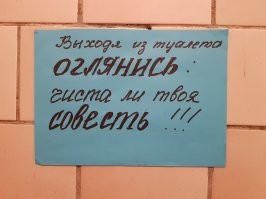 Выходя из туалета
оглянись:
чиста ли твоя
совесть !!!